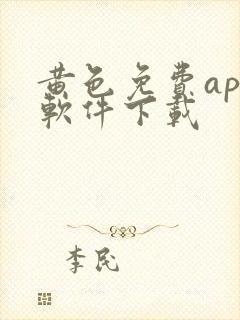 黄色免費ap
軟件下載
李民